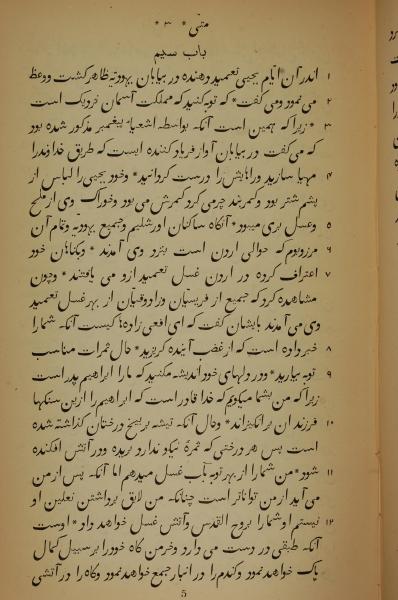 متی * ۳ *
باب سیم
۱ اندر آن ایام یحیی تعمید دهنده در بیابان یهودیه ظاهر گشت و وعظ
۲ می نمود ومی گفت * که توبه کنید که مملکت آسمان نزدیک است
۳ * زیرا که همین است آنکه بواسطه اشعیاء پیغمبر مذکور شده بود
که می گفت در بیابان آواز فریاد کننده ایست که طریق خداوند را
۴ مهیا سازید وراهایش را درست گردانید * وخود یحیی را لباس از
پشم شتر بود وکمربند چرمی گرد کمرش می بود وخوراک وی از ملخ
۵ وعسل بری میبود * آنگاه ساکنان اورشلیم وجمیع یهودیه وتمام آن
۶ مرز وبوم که حوالی اردن است بنزد وی آمدند * وبگناهان خود
۷ اعتراف کرده در اردن غسل تعمید ازو می یافتند * وچون
مشاهده کرد که جمیع از فریسیان وزادوقیان از بهر غسل تعمید
وی می آمدند بایشان گفت که ای افعی زادها کیست آنکه شما را
۸ خبر داده است که از غضب آینده گریزید * حال ثمرات مناسب
۹ توبه بیارید * ودر دلهای خود اندیشه مکنید که ما را ابراهیم پدر است
زیرا که من بشما میگویم که خدا قادر است که ابراهیم را ازین سنگها
۱۰ فرزندان برانگیزاند * وحال آنکه تیشه بر بیخ درختان گذاشته شده
است پس هر درختی که ثمرهٔ نیکو ندارد بریده ودر آتش افکنده
۱۱ شود * من شما را از بهر توبه بآب غسل میدهم اما آنکه پس از من
می آید از من تواناتر است چنانکه من لایق برداشتن نعلین او
۱۲ نیستم او شما را بروح القدس وآتش غسل خواهد داد * اوست
آنکه طبقی در دست می دارد وخرمن گاه خود را بر سبیل کمال
پاک خواهد نمود وگندم را در انبار جمع خواهد نمود وکاه را در آتشی
5